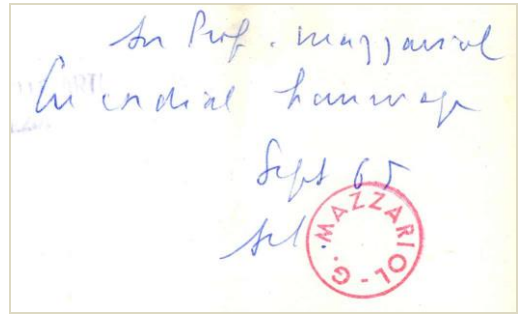 Au Prof. Mazzariol
En cordial hommage
Sept 65
G. MAZZARIOL